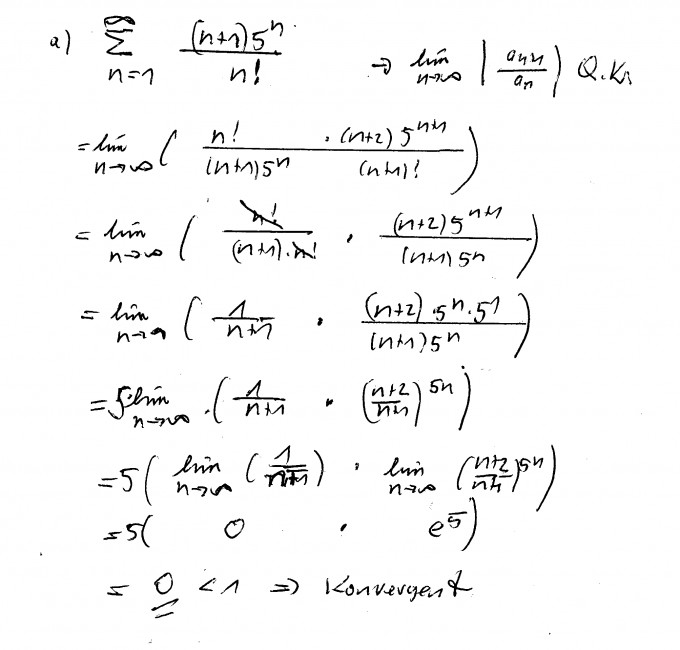 a) ∑_{n=1}^{∞} (n+1)5^n / n! → lim_{n→∞} | a_{n+1} / a_n | Q.Kr
= lim_{n→∞} ( n! / (n+1)5^n · (n+2)5^{n+1} / (n+1)! )
= lim_{n→∞} ( n! / (n+1)·n! · (n+2)5^{n+1} / (n+1)5^n )
= lim_{n→∞} ( 1 / n+1 · (n+2)·5^n·5^1 / (n+1)5^n )
= 5·lim_{n→∞} · ( 1 / n+1 · (n+2 / n+1)^{5n} )
= 5( lim_{n→∞} ( 1 / n+1 ) · lim_{n→∞} (n+2 / n+1)^{5n} )
= 5( 0 · e^5 )
= 0 < 1 ⇒ Konvergent